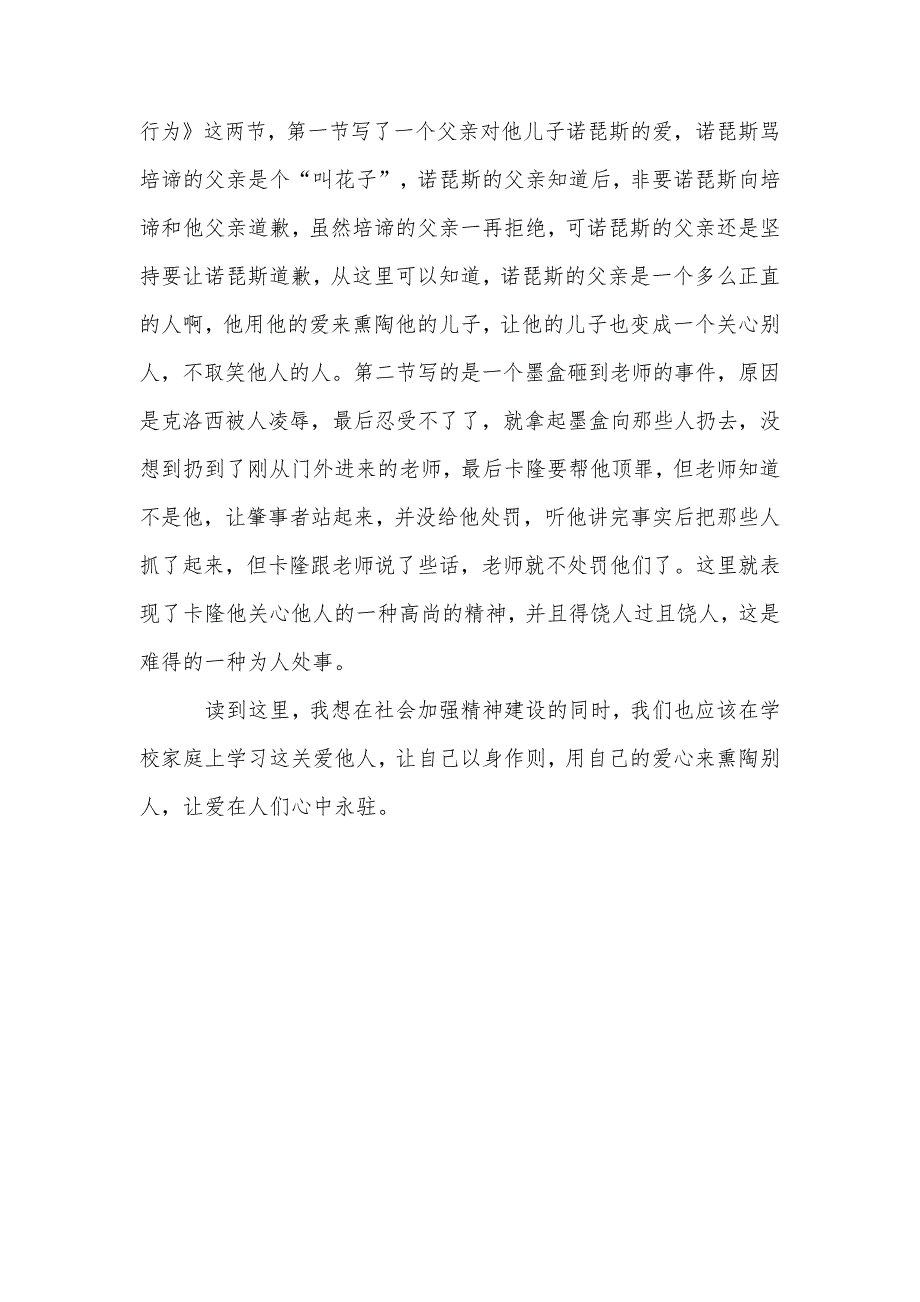 行为》这两节，第一节写了一个父亲对他儿子诺琵斯的爱，诺琵斯骂
培谛的父亲是个“叫花子”，诺琵斯的父亲知道后，非要诺琵斯向培
谛和他父亲道歉，虽然培谛的父亲一再拒绝，可诺琵斯的父亲还是坚
持要让诺琵斯道歉，从这里可以知道，诺琵斯的父亲是一个多么正直
的人啊，他用他的爱来熏陶他的儿子，让他的儿子也变成一个关心别
人，不取笑他人的人。第二节写的是一个墨盒砸到老师的事件，原因
是克洛西被人凌辱，最后忍受不了了，就拿起墨盒向那些人扔去，没
想到扔到了刚从门外进来的老师，最后卡隆要帮他顶罪，但老师知道
不是他，让肇事者站起来，并没给他处罚，听他讲完事实后把那些人
抓了起来，但卡隆跟老师说了些话，老师就不处罚他们了。这里就表
现了卡隆他关心他人的一种高尚的精神，并且得饶人过且饶人，这是
难得的一种为人处事。
读到这里，我想在社会加强精神建设的同时，我们也应该在学
校家庭上学习这关爱他人，让自己以身作则，用自己的爱心来熏陶别
人，让爱在人们心中永驻。